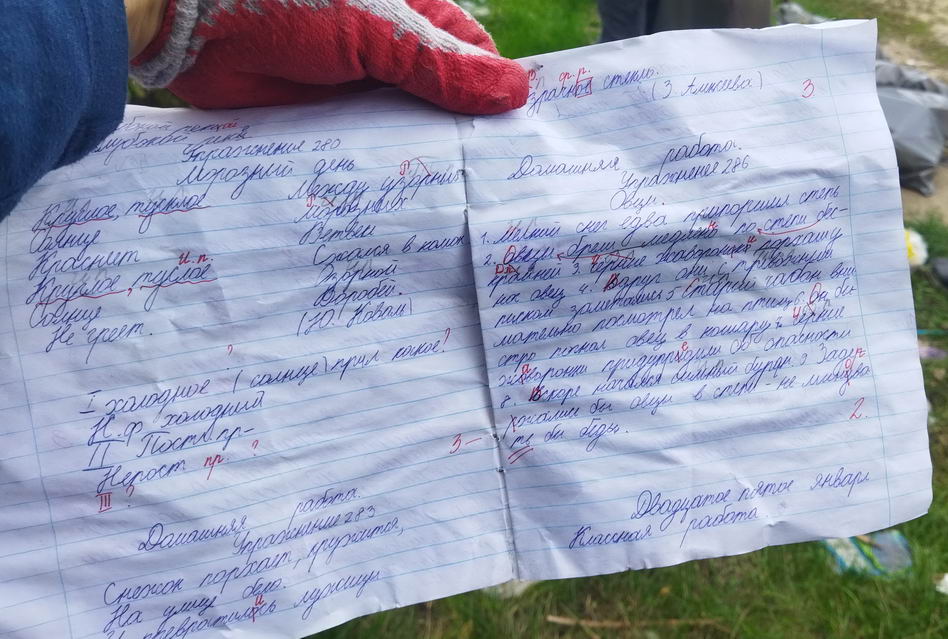 Упражнение 280
Морозний день
Круглое, тусклое
Солнце
Краснеет
Круглое, тусклое
Солнце
Не греет.
Между узорных
Морозных
Ветвей
Сжался в комок
Зяркой
Воробей.
(Ю. Коваль)
и. п.
?
I холодное (солнце) прил какое?
Н.ф. холодний
II Пост. пр-
Непост пр. ?
III ?
3-
Домашняя работа.
Упражнение 283
Снежок порхает, кружится,
На улице бело.
И превратились лужицы
ф. р.
зрачное стекло.
(З. Алексеева)
3
Домашняя работа.
Упражнение 286
Овци.
1. Мелкий снег едва припорошил степь
2. Овции брели медлено по степи бес-
крайней 3. Черние жаворонки
нок овец 4. Вдруг они с тревожним
писком заметались 5 Старий чабан вни
мательно посмотрел на птиц 6. Он би
стро погнал овец в кошару 7. Черние
жаворонки придупредили об опасности
8. Вскоре начался зимний буран. 9 Заде
ржались бы овци в степи - не миновa
ть бы беды.
2.
Двадцатое пятое январ
Классная работа.